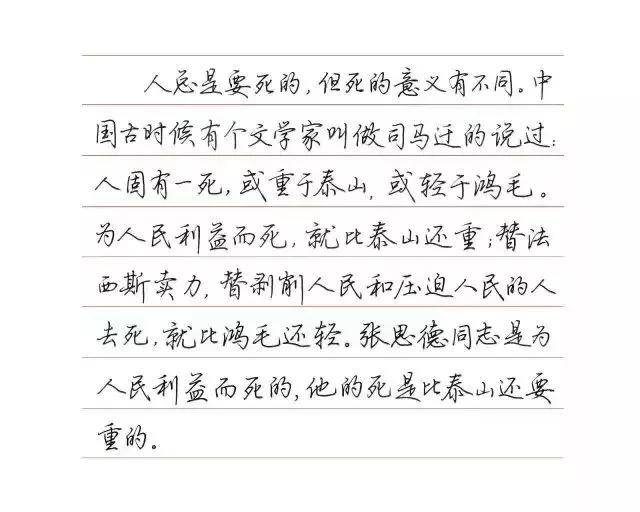 人总是要死的,但死的意义有不同。中
国古时候有个文学家叫做司马迁的说过:
人固有一死,或重于泰山,或轻于鸿毛。
为人民利益而死,就比泰山还重;替法
西斯卖力,替剥削人民和压迫人民的人
去死,就比鸿毛还轻。张思德同志是为
人民利益而死的,他的死是比泰山还要
重的。